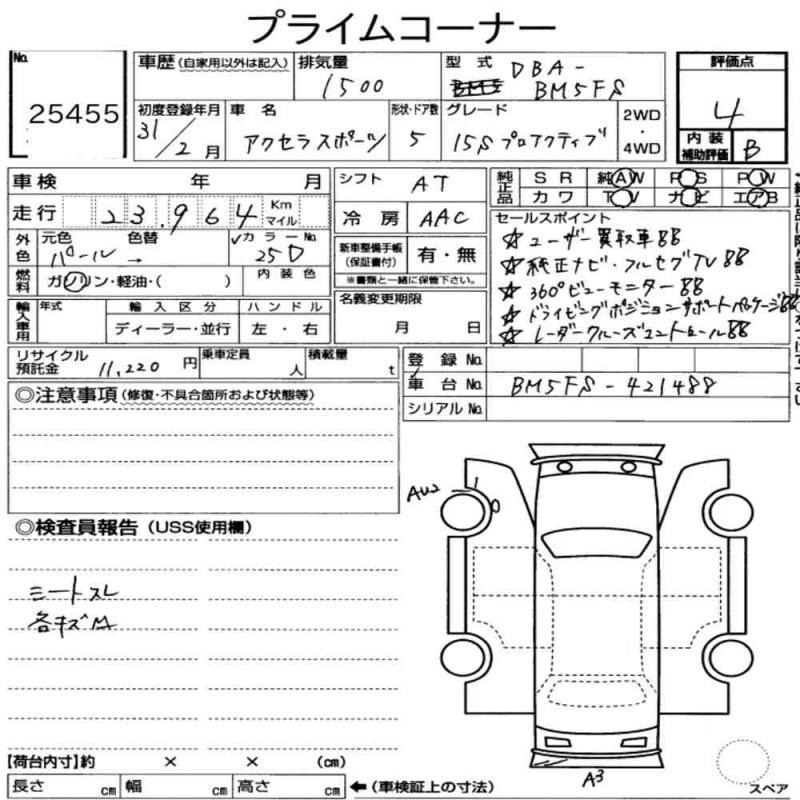 プライムコーナー
No. 25455
車歴 (自家用以外は記入)
排気量 1500
型式 DBA- BM5FS
評価点 4
内装補助評価 B
初度登録年月 31/2月
車名 アクセラスポーツ
形状・ドア数 5
グレード 15S プロアクティブ
2WD・4WD
車検 年 月
走行 23,964 Km マイル
シフト AT
冷房 AAC
純正品 SR 純AW PS PW
カワ TV ナビ エアB
セールスポイント
☆ユーザー買取車!!
☆純正ナビ・フルセグTV!!
☆360°ビューモニター!!
☆ドライビングポジションサポートパッケージ!!
☆レーダークルーズコントロール!!
外色 元色 パール 色替 →
✓カラーNo. 25D
燃料 ガソリン・軽油・( )
内装色
新車整備手帳(保証書付) 有・無
※書類と一緒に保管下さい。
名義変更期限 月 日
輸入車用 年式 輸入区分 ハンドル
ディーラー・並行 左・右
リサイクル預託金 11,220円
乗車定員 人
積載量 t
登録No.
✓車台No. BM5FS-421488
シリアルNo.
◎注意事項(修復・不具合箇所および状態等)
◎検査員報告(USS使用欄)
シートスレ
各キズ
AU2
A3
【荷台内寸】約 × × (cm)
長さ cm 幅 cm 高さ cm ←(車検証上の寸法)
スペア